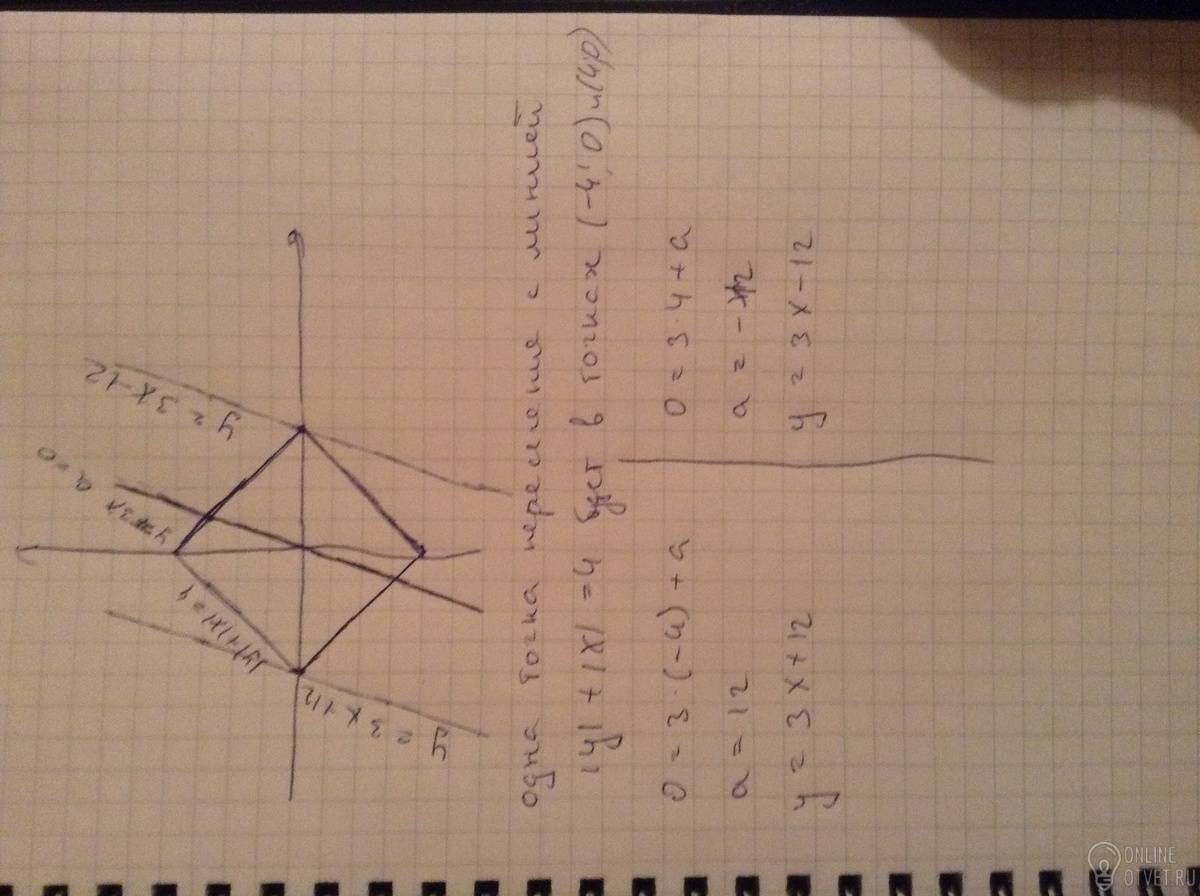 y = 3x-12
a=0
y=3x
|y|+|x|=4
y = 3x+12
одна точка пересечения с линией
|y| + |x| = 4 будет в точках (-4; 0) и (4;0)
0 = 3·(-4) + a
a = 12
y = 3x+12
0 = 3·4+a
a = -12
y = 3x-12
ONLINE
OTVET.RU